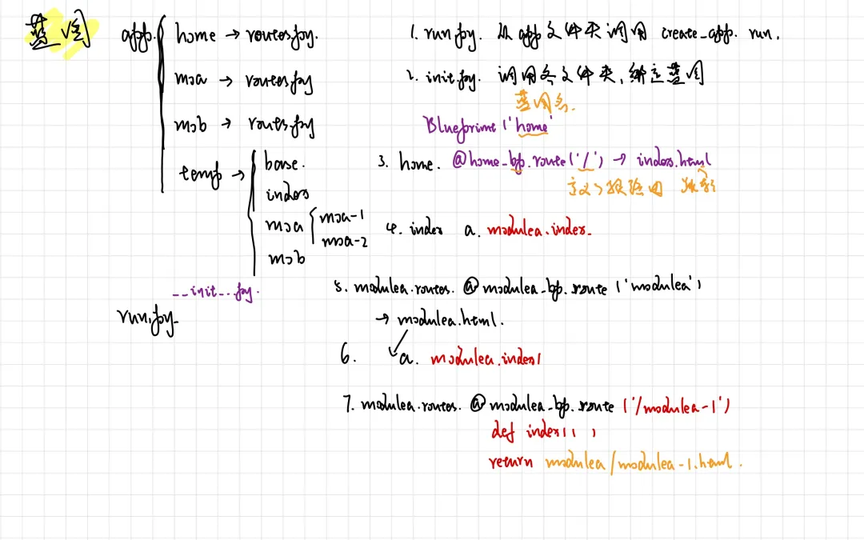 蓝图
app.
home → routes.py.
moa → routes.py
mob → routes.py
temp →
base.
index
moa
moa-1
moa-2
mob
__init__.py.
run.py
1. run.py. 从 app 文件夹调用 create_app. run.
2. init.py. 调用各文件夹, 绑定蓝图
蓝图名.
Blueprime ('home'
3. home. @home_bp.route('/') → index.html
定义了根路由
4. index a. modulea.index.
5. modulea.routes. @modulea_bp.route ('modulea')
→ modulea.html.
6. a. modulea.index1
7. modulea.routes. @modulea_bp.route ('/modulea-1')
def index1( )
return modulea/modulea-1.html.